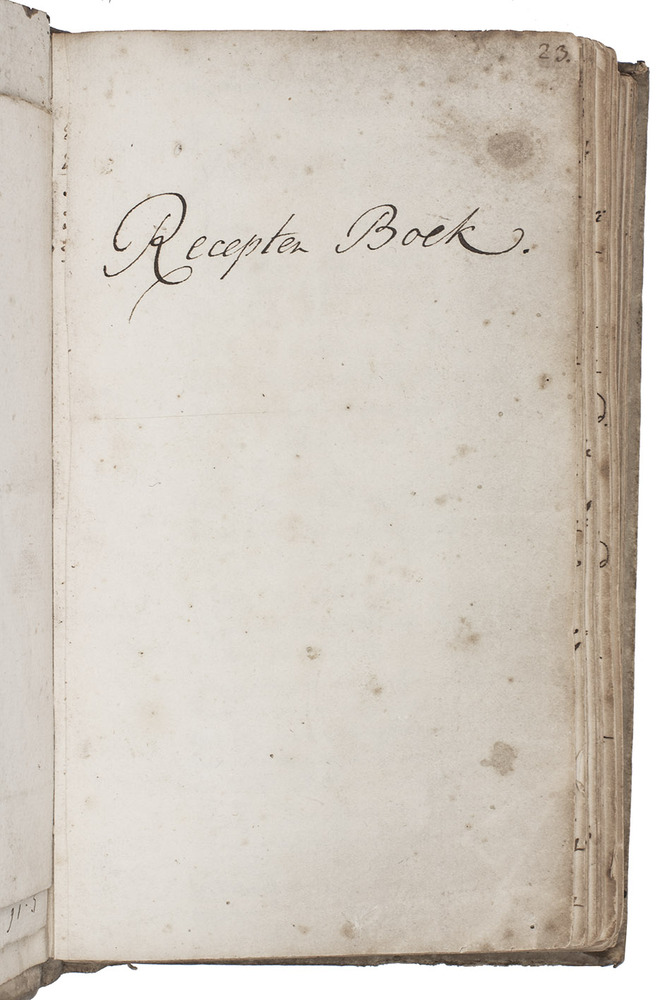 23.
Recepten Boek.